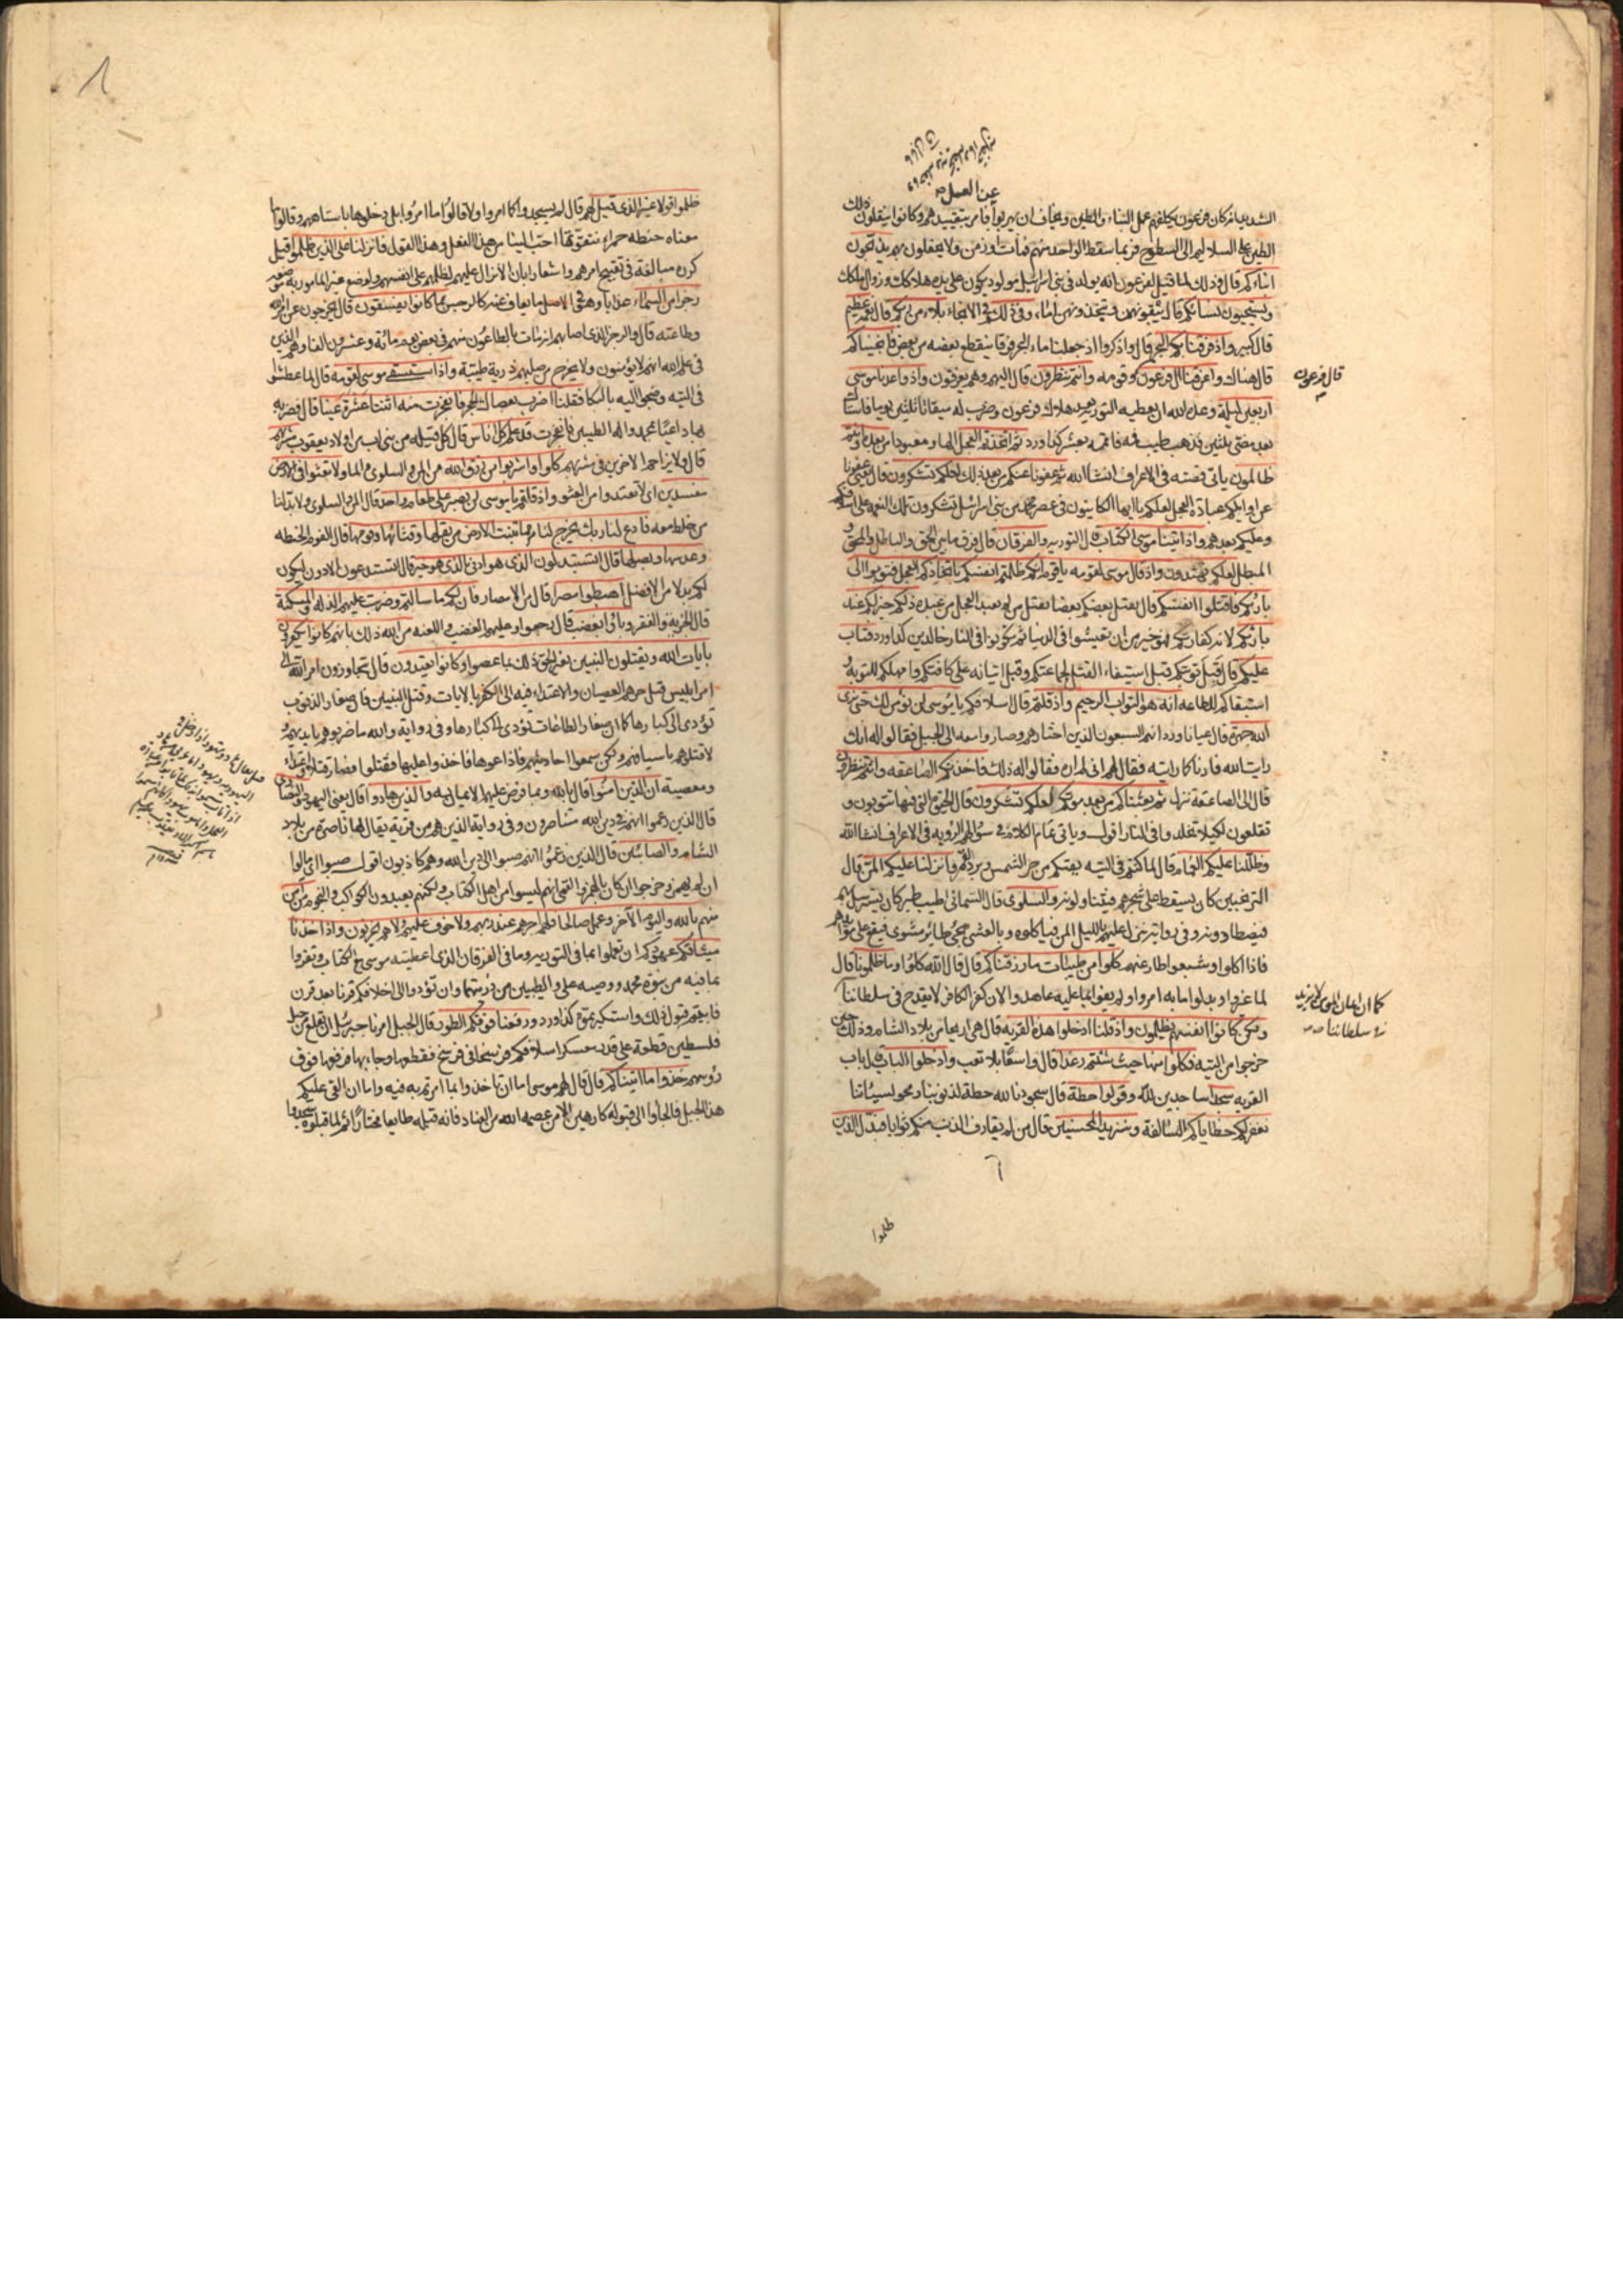 عن العمل
الشديد كان فرعون يكلفهم عمل البناء والطين ويخاف ان يهربوا فامر بتقييدهم وكانوا ينقلون ذلك
الطين على السلاليم الى السطوح فربما سقط الواحد منهم فمات او زمن ولا يحفلون بهم يذبحون
ابناءكم قال وذلك لما قيل لفرعون انه يولد في بني اسرائيل مولود يكون على يده هلاكك وزوال ملكك
ويستحيون نساءكم قال يبقونهن ويتخذونهن اماء وفي ذلكم الانجاء بلاء من ربكم قال نعمة عظيم
قال كبير واذ فرقنا بكم البحر قال واذكروا اذ جعلنا ماء البحر فرقا ينقطع بعضه من بعض فانجيناكم
قال هناك واغرقنا ال فرعون وقومه وانتم تنظرون قال اليهم وهم يغرقون واذ واعدنا موسى
اربعين ليلة وعده الله ان يعطيه التورية بعد هلاك فرعون وضرب له ميقاتا ثلثين يوما فاستاك
بعد مضى ثلثين فذهب طيب فيه فاتمه بعشر كذا ورد ثم اتخذتم العجل الها ومعبودا من بعده وانتم
ظالمون ياتي قصته في الاعراف انشا الله ثم عفونا عنكم من بعد ذلك لعلكم تشكرون قال يعني عفونا
عن اوايلكم عبادة العجل لعلكم يا ايها الكاينون في عصر محمد من بني اسرائيل تشكرون تلك النعمة على اسلافكم
وعليكم بعدهم واذ اتينا موسى الكتاب قال التورية والفرقان قال فرق ما بين الحق والباطل والمحق و
المبطل لعلكم تهتدون واذ قال موسى لقومه يا قوم انكم ظلمتم انفسكم باتخاذكم العجل فتوبوا الى
بارئكم فاقتلوا انفسكم قال يقتل بعضكم بعضا يقتل من لم يعبد العجل من عبده ذلكم خير لكم عند
بارئكم لانه كفارتكم فهو خير من ان تعيشوا في الدنيا ثم تكونوا في النار خالدين كذا ورد فتاب
عليكم قال قبل توبتكم قبل استيفاء القتل لجماعتكم وقبل اتيانه على كافتكم وامهلكم للتوبة و
استبقاكم للطاعة انه هو التواب الرحيم واذ قلتم قال اسلافكم يا موسى لن نؤمن لك حتى نرى
الله جهرة قال عيانا ورد انهم السبعون الذين اختارهم وصاروا معه الى الجبل فقالوا له انك
رايت الله فارناه كما رايته فقال لهم اني لم اره فقالوا له ذلك فاخذتكم الصاعقة وانتم تنظرون
قال الى الصاعقة تنزل ثم بعثناكم من بعد موتكم لعلكم تشكرون قال الحيوة التي فيها تتوبون و
تقلعون لكيلا تخلدوا في النار اقول وياتي تمام الكلام في سؤالهم الرؤية في الاعراف انشا الله
وظللنا عليكم الغمام قال لما كنتم في التيه يقيكم من حر الشمس وبرد القمر وانزلنا عليكم المن قال
الترنجبين كان يسقط على شجرهم فيتناولونه والسلوى قال السماني اطيب طير كان يسترسل لهم
فيصطادونه وفي رواية ينزل عليهم بالليل المن فياكلوه وبالعشى يجئ طائر مشوى فيقع على موائدهم
فاذا اكلوا وشبعوا طار عنهم كلوا من طيبات ما رزقناكم قال قال الله كلوا وما ظلمونا قال
لما غيروا وبدلوا ما به امروا ولم يفوا بما عليه عاهدوا لان كفر الكافر لا يقدح في سلطاننا
ولكن كانوا انفسهم يظلمون واذ قلنا ادخلوا هذه القرية قال هي اريحا من بلاد الشام وذلك حين
خرجوا من التيه فكلوا منها حيث شئتم رغدا قال واسعا بلا تعب وادخلوا الباب باب
القرية سجدا ساجدين لله وقولوا حطة قال سجودنا لله حطة لذنوبنا ومحو لسيئاتنا
نغفر لكم خطاياكم السالفة وسنزيد المحسنين قال من لم يقارف الذنب منكم ثوابا فبدل الذين
ظلموا
قال فرعون
كما ان ايمان المومن لا يزيد
في سلطاننا
ظلموا قولا غير الذي قيل لهم قال لم يسجدوا كما امروا ولا قالوا ما امروا بل دخلوها باستاههم وقالوا ما
معناه حنطة حمراء نتقوتها احب الينا من هذا الفعل وهذا القول فانزلنا على الذين ظلموا قيل
كرره مبالغة في تقبيح امرهم واشعارا بان الانزال عليهم لظلمهم على انفسهم ولوضع غير المامور به موضعه
رجزا من السماء عذابا وهو في الاصل ما يعاف عنه كالرجس بما كانوا يفسقون قال يخرجون عن امر الله
وطاعته قال والرجز الذي اصابهم انه مات بالطاعون منهم في بعض يوم مائة وعشرون الفا وهم الذين
في علم الله انهم لا يؤمنون ولا يخرج من صلبهم ذرية طيبة واذ استسقى موسى لقومه قال لما عطشوا
في التيه وضجوا اليه بالبكا فقلنا اضرب بعصاك الحجر فانفجرت منه اثنتا عشرة عينا قال فضربه
بها داعيا بمحمد واله الطيبين فانفجرت قد علم كل اناس قال كل قبيلة من بني اب من اولاد يعقوب مشربهم
قال ولا يزاحم الاخرين في مشربهم كلوا واشربوا من رزق الله من المن والسلوى والماء ولا تعثوا في الارض
مفسدين اى لا تعتدوا من العثو واذ قلتم يا موسى لن نصبر على طعام واحد قال المن والسلوى ولا بد لنا
من خلط معه فادع لنا ربك يخرج لنا مما تنبت الارض من بقلها وقثائها وفومها قال الفوم الحنطة
وعدسها وبصلها قال اتستبدلون الذى هو ادنى بالذى هو خير قال اتستدعون الادون ليكون
لكم بدلا من الافضل اهبطوا مصرا قال من الامصار فان لكم ما سالتم وضربت عليهم الذلة والمسكنة
قال الجزية والفقر وباؤا بغضب قال رجعوا وعليهم الغضب واللعنة من الله ذلك بانهم كانوا يكفرون
بايات الله ويقتلون النبيين بغير الحق ذلك بما عصوا وكانوا يعتدون قال يتجاوزون امر الله الى
امر ابليس قيل جرهم العصيان والاعتداء فيه الى الكفر بالايات وقتل النبيين فان صغار الذنوب
تؤدى الى كبارها كما ان صغار الطاعات تؤدى الى كبارها وفي رواية والله ما ضربوهم بايديهم و
لا قتلوهم باسيافهم ولكن سمعوا احاديثهم فاذاعوها فاخذوا عليها فقتلوا فصار قتلا واعتداء
ومعصية ان الذين امنوا قال بالله وبما فرض عليهم الايمان به والذين هادوا قال يعني اليهود والنصارى
قال الذين زعموا انهم في دين الله متناصرون وفي رواية الذين هم من قرية يقال لها ناصرة من بلاد
الشام والصابئين قال الذين زعموا انهم صبوا الى دين الله وهم كاذبون اقول صبوا اى مالوا
ان لم يهمز وخرجوا ان كان بالهمز والقمى انهم ليسوا من اهل الكتاب ولكنهم يعبدون الكواكب والنجوم من امن
منهم بالله واليوم الاخر وعمل صالحا فلهم اجرهم عند ربهم ولا خوف عليهم ولا هم يحزنون واذ اخذنا
ميثاقكم عهودكم ان تعملوا بما في التورية وما في الفرقان الذى اعطيته موسى مع الكتاب وتقروا
بما فيه من نبوة محمد ووصية على والطيبين من ذريتهما وان تؤدوا الى اخلافكم قرنا بعد قرن
فابيتم قبول ذلك واستكبرتموه كذا ورد ورفعنا فوقكم الطور قال الجبل امرنا جبرئيل ان يقلع من جبل
فلسطين قطعة على قدر معسكر اسلافكم فرسخا في فرسخ فقطعها وجاء بها فرفعها فوق
رؤسهم خذوا ما اتيناكم قال قال لهم موسى اما ان تاخذوا بما امرتم به فيه واما ان القى عليكم
هذا الجبل فالجاوا الى قبوله كارهين الا من عصمه الله من العناد فانه قبله طايعا مختارا ثم لما قبلوه سجدوا